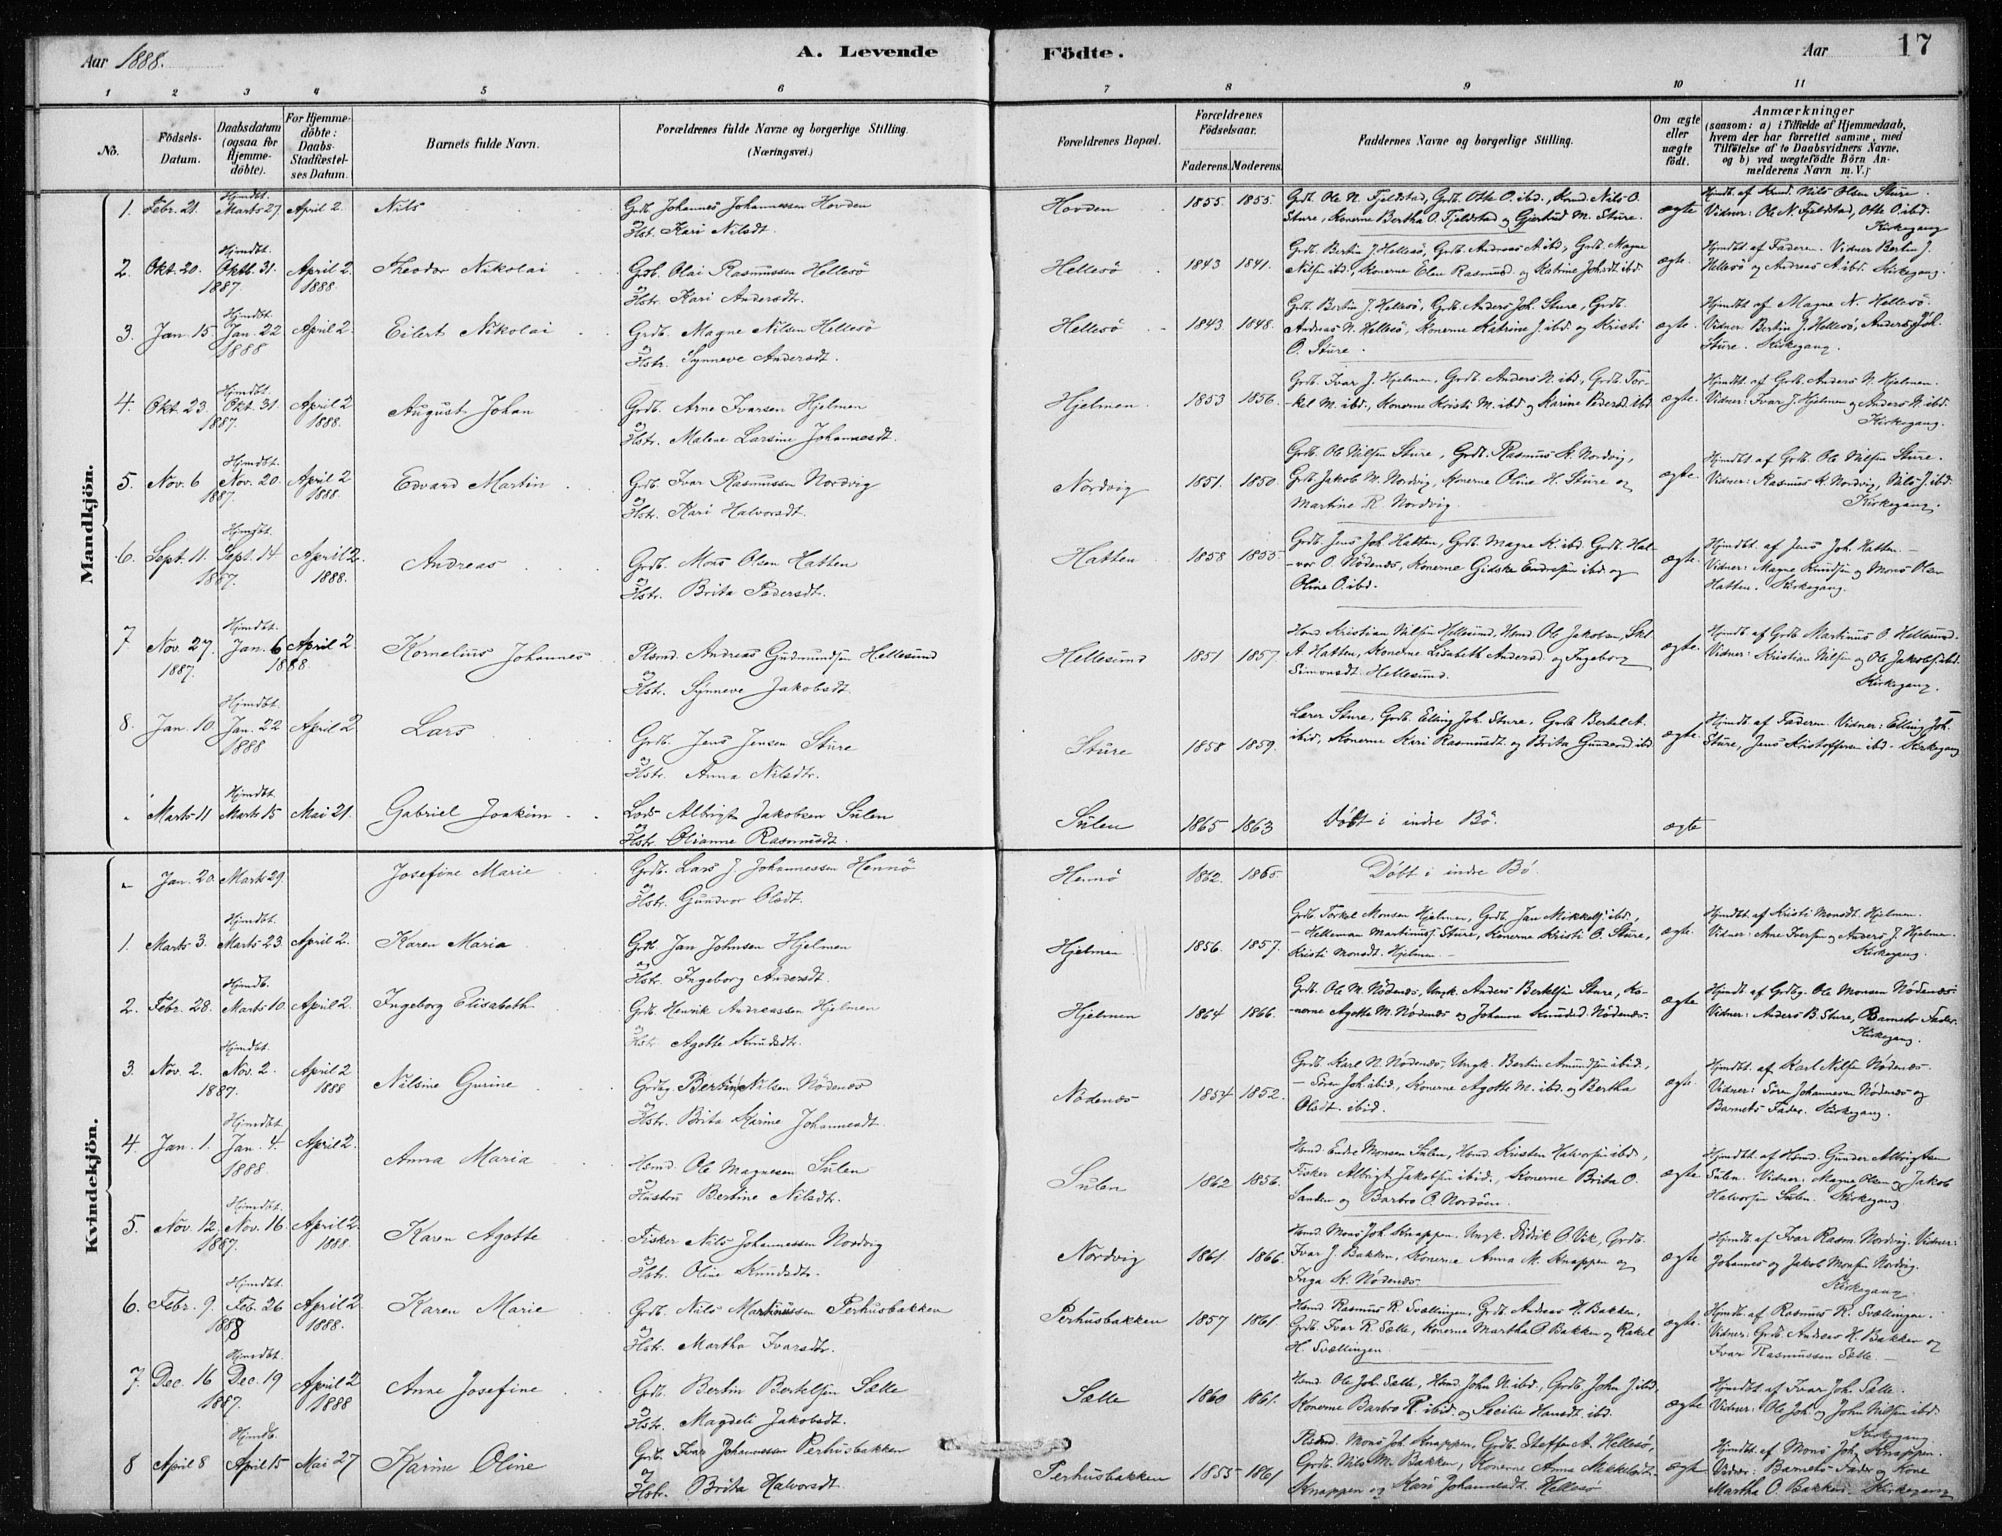 Aar 1888.
A. Levende Födte.
Aar
17
1 2 3 4 5 6 7 8 9 10 11
No.
Födsels-Datum.
Daabsdatum (ogsaa for Hjemme-döbte).
For Hjemme-döbte: Daabs-Stadfæstel-ses Datum.
Barnets fulde Navn.
Forældrenes fulde Navne og borgerlige Stilling.
(Næringsvei.)
Forældrenes Bopæl.
Forældrenes Födselsaar.
Faderens. Moderens.
Faddernes Navne og borgerlige Stilling.
Om ægte eller uægte födt.
Anmærkninger
(saasom: a) i Tilfælde af Hjemmedaab,
hvem der har forrettet samme, med
Tilföielse af to Daabsvidners Navne,
og b) ved uægtefödte Börn An-
melderens Navn m. V.)
Mandkjön.
1. Febr. 21. Hjmdbt. Marts 27 April 2. Nils
Grdb. Johannes Johannessen Hovden
og Hstr. Kari Nilsdt.
Hovden 1855. 1855.
Grdb. Ole N. Fjeldstad, Grdb. Otto O. ibd., Knud Nils O.
Sture, Konerne Bertha O. Fjeldstad og Gjertrud M. Sture.
ægte
Hjmdt. af Knud Nils Olsen Sture.
Vidner: Ole N. Fjeldstad, Otto O. ibd.
Kirkegang
2. Okt. 20. Hjmdbt. Oktb. 31. 1887 April 2. 1888. Theodor Nikolai
Grdb. Olai Rasmussen Hellesö
og Hstr. Kari Andersdtr.
Hellesö 1843 1841.
Grdb. Bertin J. Hellesö, Grdb. Andreas A. ibd., Grdb. Magne
Nilsen ibd., Konerne Elen Rasmusd. og Katrine Johsdt. ibd.
ægte.
Hjmdbt. af Faderen. Vidner Bertin J.
Hellesö og Andreas A. ibd. Kirkegang.
3. Jan. 15 Hjmdbt. Jan. 22 1888 April 2. Eilert Nikolai
Grdb. Magne Nilsen Hellesö
og Hstr. Synneve Andersdt.
Hellesö 1843 1848.
Grdb. Bertin J. Hellesö, Grdb. Anders Joh. Sture, Grdb.
Andreas N. Hellesö, Konerne Katrine J. ibd. og Kristi
O. Sture.
ægte.
Hjmdbt. af Magne N. Hellesö.
Vidner: Bertin J. Hellesö, Anders Joh.
Sture. Kirkegang.
4. Okt. 23. Hjmdbt. Okt. 31. 1887. April 2 1888. August Johan
Grdb. Arne Ivarsen Hjelmen
og Hstr. Malene Larsine Johannesdt.
Hjelmen 1853 1856.
Grdb. Ivar J. Hjelmen, Grdb. Anders N. ibd., Grdb. Tor-
-kel M. ibd., Konerne Kristi M. ibd. og Karine Pedersd. ibd
ægte.
Hjmdbt. af Grdb. Anders N. Hjelmen.
Vidner: Ivar J. Hjelmen og Anders N. ibd.
Kirkegang.
5. Nov. 6 1887 Hjmdbt. Nov. 20. April 2 1888. Edvard Martin
Grdb. Ivar Rasmussen Nordvig
og Hstr. Kari Halvorsdt.
Nordvig 1851. 1850
Grdb. Ole Nilsen Sture, Grdb. Rasmus K. Nordvig,
Grdb. Jakob M. Nordvig, Konerne Oline H. Sture og
Martine R. Nordvig.
ægte.
Hjmdbt. af Grdb. Ole Nilsen Sture.
Vidner: Rasmus K. Nordvig, Nils J. ibd.
Kirkegang.
6. Sept. 11. Hjmdbt. Sept. 14 1887. April 2. 1888. Andreas
Grdb. Mons Olsen Hatten
og Hstr. Brita Pedersdt.
Hatten 1858 1855
Grdb. Jens Joh. Hatten, Grdb. Magne K. ibd. Grdb. Hal-
-vor O. Nödenæs, Konerne Gidske Endresen ibd og
Oline O. ibd.
ægte.
Hjmdbt. af Jens Joh. Hatten.
Vidner: Magne Knudsen og Mons Olsen
Hatten. Kirkegang.
7 Nov. 27. 1887. Hjmdbt. Jan. 6 1888. April 2. Kornelius Johannes
Plsmd. Andreas Gudmundsen Hellesund
og Hstr. Synneve Jakobsdt.
Hellesund 1851 1857
Hsmd Kristian Nilsen Hellesund, Hsmd Ole Jakobsen,
A. Hatten, Konerne Lisabeth Andersd. og Ingeborg
Simonsdt. Hellesund.
ægte.
Hjmdt. af Grdb. Martinus O. Hellesund.
Vidner: Kristian Nilsen og Ole Jakobs. ibd.
Kirkegang.
8. Jan. 10 Hjmdbt. Jan. 22 1888 April 2 Lars
Grdb. Jens Jensen Sture
og Hstr. Anna Nilsdtr.
Sture 1858 1859.
Lærer Sture, Grdb. Elling Joh. Sture, Grdb. Bertel A.
ibid., Konerne Kari Rasmusdt. og Brita Gundersd. ibd
ægte.
Hjmdt. af Faderen. Vidner: Elling Joh.
Sture, Jens Kristoffersen ibd. Kirkegang
Marts 11 Hjmdbt. Marts 15 Mai 21. Gabriel Joakim
Lods Albrigt Jakobsen Sulen
og Hstr. Olianne Rasmusdt.
Sulen 1865 1863
Döbt i indre Bö.
ægte
Kvindekjön.
Jan. 20. Marts 29. Josefine Marie
Grdb. Lars J. Johannessen Hennö
og Hstr. Gundvor Olsdt.
Hennö 1862. 1865.
Döbt i indre Bö.
1. Marts 3. Hjmdbt. Marts 23. April 2. Karen Maria
Grdb. Jan Johnsen Hjelmen
og Hstr. Ingeborg Andersdt.
Hjelmen 1856. 1857.
Grdb. Torkel Monsen Hjelmen, Grdb. Jan Mikkels. ibd.,
- Helleman Martinuss. Sture, Konerne Kristi O. Sture,
Kristi Monsdt. Hjelmen.
ægte.
Hjmdbt. af Kristi Monsdt. Hjelmen.
Vidner: Arne Iversen og Anders J. Hjelmen
Kirkegang.
2. Febr. 28. Hjmdb. Marts 10. April 2. Ingeborg Elisabeth
Grdb. Henrik Andreassen Hjelmen
og Hstr. Agotte Knudsdtr.
Hjelmen 1864 1866.
Grdb. Ole M. Nödenæs, Ungk. Anders Bertelsen Sture, Ko-
-nerne Agotte M. Nödenæs og Johanne Knudsd. Nödenæs.
ægte
Hjmdt. af Grdbg. Ole Monsen Nödenæs
Vidner: Anders B. Sture, Barnets Fader.
Kirkegang.
3. Nov. 2. 1887. Hjmdbt. Nov. 2. April 2 1888 Nilsine Gurine
Grdbg. Bertin Nilsen Nödenæs
og Hstr. Brita Karine Johannesdt.
Nödenæs 1854 1852.
Grdb. Karl N. Nödenæs, Ungk. Bertin Amundsen ibid.,
- Sören Joh. ibid., Konerne Agotte M. ibd. og Bertha
Olsdt. ibid.
ægte.
Hjmdbt. af Karl Nilsen Nödenæs.
Vidner: Sören Johannesen Nödenæs og
Barnets Fader. Kirkegang.
4 Jan. 1. Hjmdbt. Jan. 4. 1888. April 2. Anna Maria
Hsmd. Ole Magnesen Sulen
og Hustru Bertine Nilsdt.
Sulen 1862 1856.
Hsmd Endre Monsen Sulen, Hsmd. Kristen Halvorsen ibd.,
Fisker Albrigt Jakobsen ibid., Konerne Brita O.
Sanden og Barbro O. Nordöen.
ægte
Hjmdbt. af Hsmd. Gunder Albrigtsen
Sulen. Vidner: Magne Olsen og Jakob
Halvorsen Sulen. Kirkegang
5. Nov. 12. 1887. Hjmdbt. Nov. 16 April 2. 1888. Karen Agotte
Fisker Nils Johannessen Nordvig
og Hstr. Oline Knudsdtr.
Nordvig 1861 1866.
Hsmd. Mons Joh. Knappen, Ungk. Didrik O. Vik, Grdb.
Ivar J. Bakken, Konerne Anna M. Knappen og
Inga K. Nödenæs.
ægte
Hjmdbt. af Ivar Rasm. Nordvig. Vidner:
Johannes og Jakob Monsen Nordvig.
Kirkegang
6. Febr. 9. Hjmdbt. Feb. 26 1888 April 2 1888. Karen Marie
Grdb. Nils Martinussen Perhusbakken
og Hstr. Martha Ivarsdtr.
Perhusbakken 1857 1861
Hsmd Rasmus R. Svællingen, Grdb. Andreas H. Bakken,
Grdb. Ivar R. Sælle, Konerne Martha O Bakken og Rakel
H. Svællingen.
ægte.
Hjmdbt. af Rasmus R. Svællingen.
Vidner: Grdb. Andreas H. Bakken og
Ivar Rasmussen Sælle.
7. Dec. 16 1887. Hjmdbt. Dec. 19 April 2 1888 Anne Josefine
Grdb. Bertin Bertelsen Sælle
og Hstr. Magdeli Jakobsdt.
Sælle 1860 1861.
Hsmd. Ole Joh. Sælle, Hsmd. John N. ibd., Grdb. John J. ibd.,
Konerne Barbro R. ibid. og Secilie Hansdt. ibd.
ægte
Hjmdbt. af Ivar Joh. Sælle.
Vidner: Ole Joh. og John Nilsen ibd.
Kirkegang
8 April 8 Hjmdb. April 15 Mai 27 Karine Oline
Grdb. Ivar Johannessen Perhusbakken
og Hstr. Brita Halvorsdt.
Perhusbakken 1855 1861
Plsmd. Mons Joh. Knappen, Grdb. Steffen A. Hellesö,
Grdb. Nils M. Bakken, Konerne Anna Mikkelsdt.
Knappen og Kari Johannesdt. Hellesö
ægte
Hjmdbt. af Mons Joh. Knappen.
Vidner: Barnets Fader og Kone
Martha O. Bakken. Kirkegang